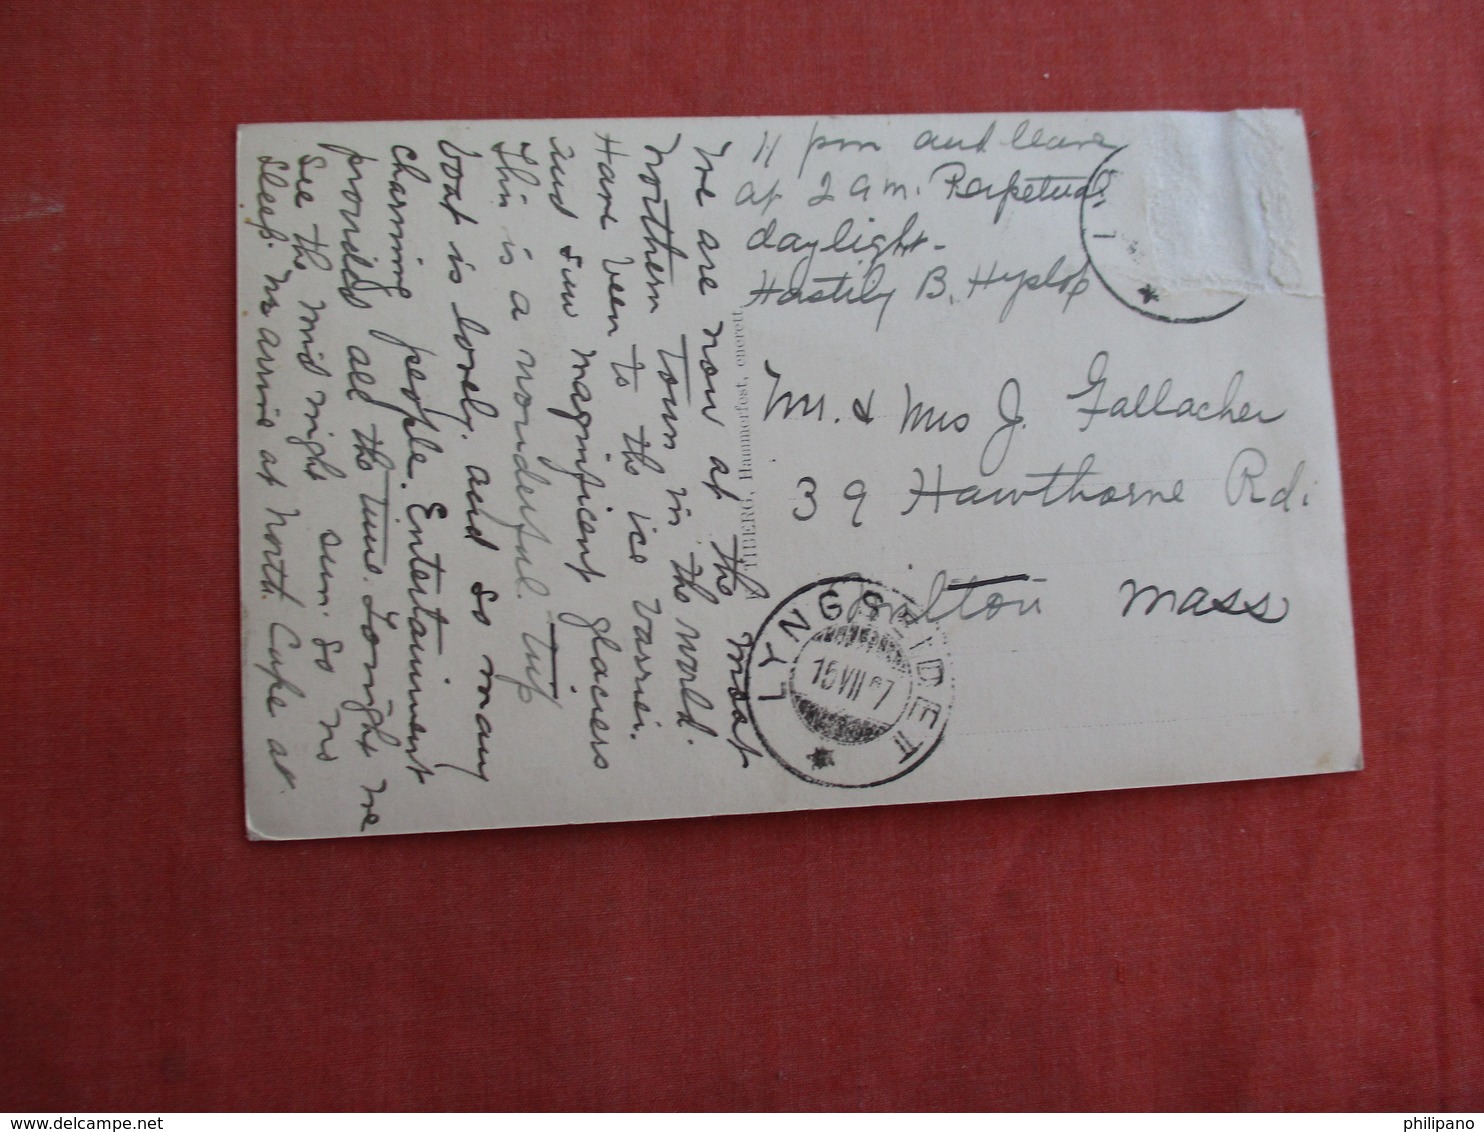 We are now at the most
Northern Town in the world.
Have been to the ice
and saw magnificent glaciers
This is a wonderful Trip
boat is lovely. and so many
charming people. Entertainment
provided all the time. Tonight we
see the mid night sun. So no
sleep. We arrive at North Cape at
11 pm and leave
at 2 am. Perpetual
daylight-
Hastily B. Hyslop
HAGEN, Hammerfest, enerett
Mr. & Mrs J. Gallacher
39 Hawthorne Rd.
Milton Mass
LYNGSEIDET
15 VII 7
philipano